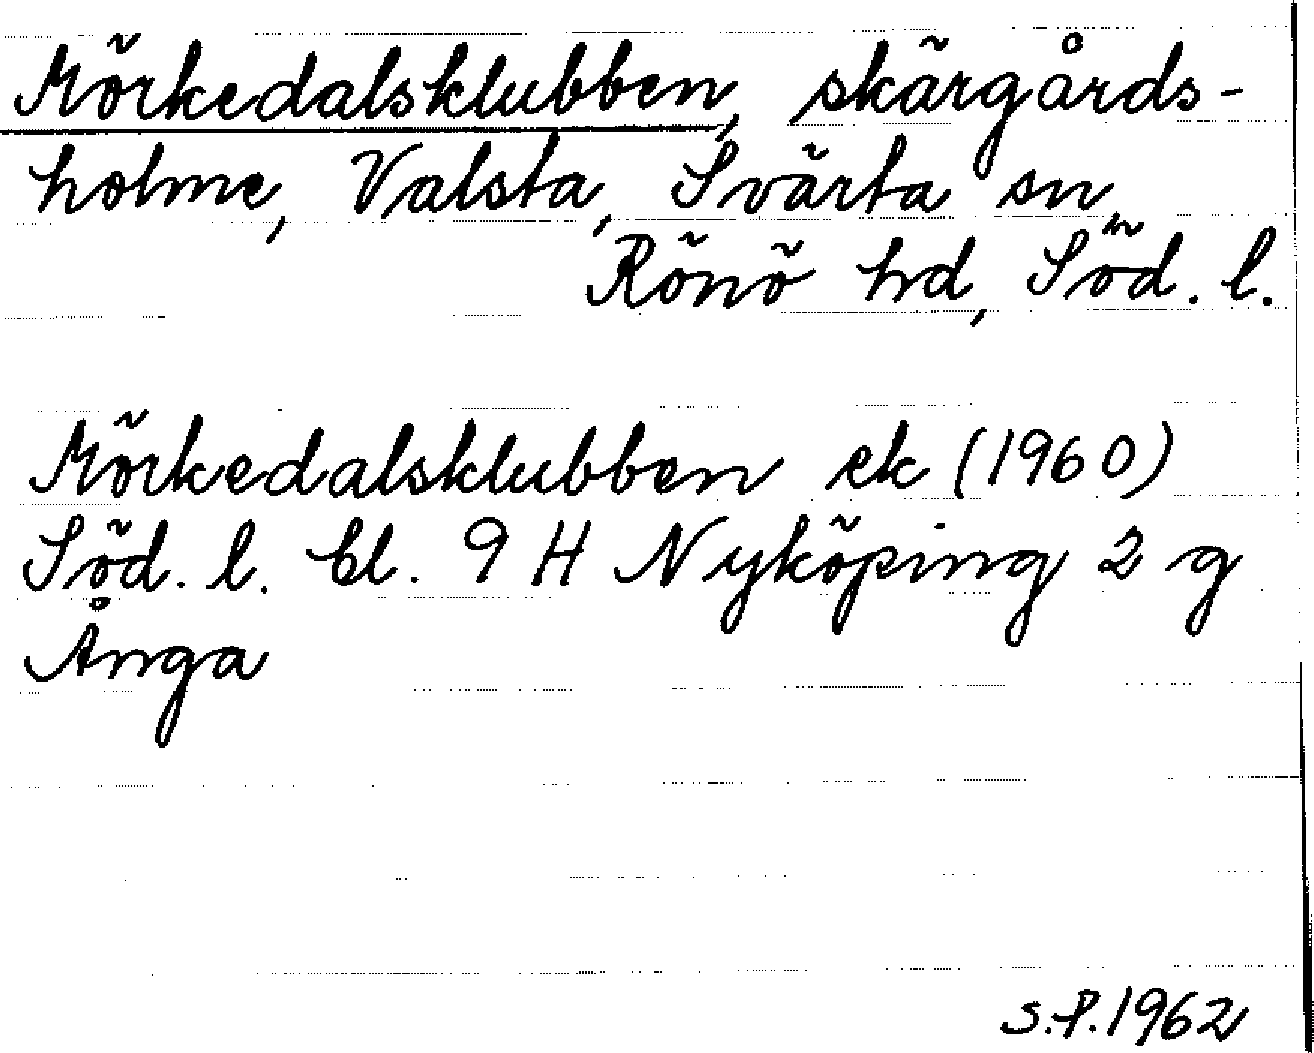 Mörkedalsklubben, skärgårds-
holme, Valsta, Svärta sn,
Rönö hd, Söd. l.
Mörkedalsklubben ek (1960)
Söd. l. bl. 9 H Nyköping 2 g
Ånga
S.P. 1962